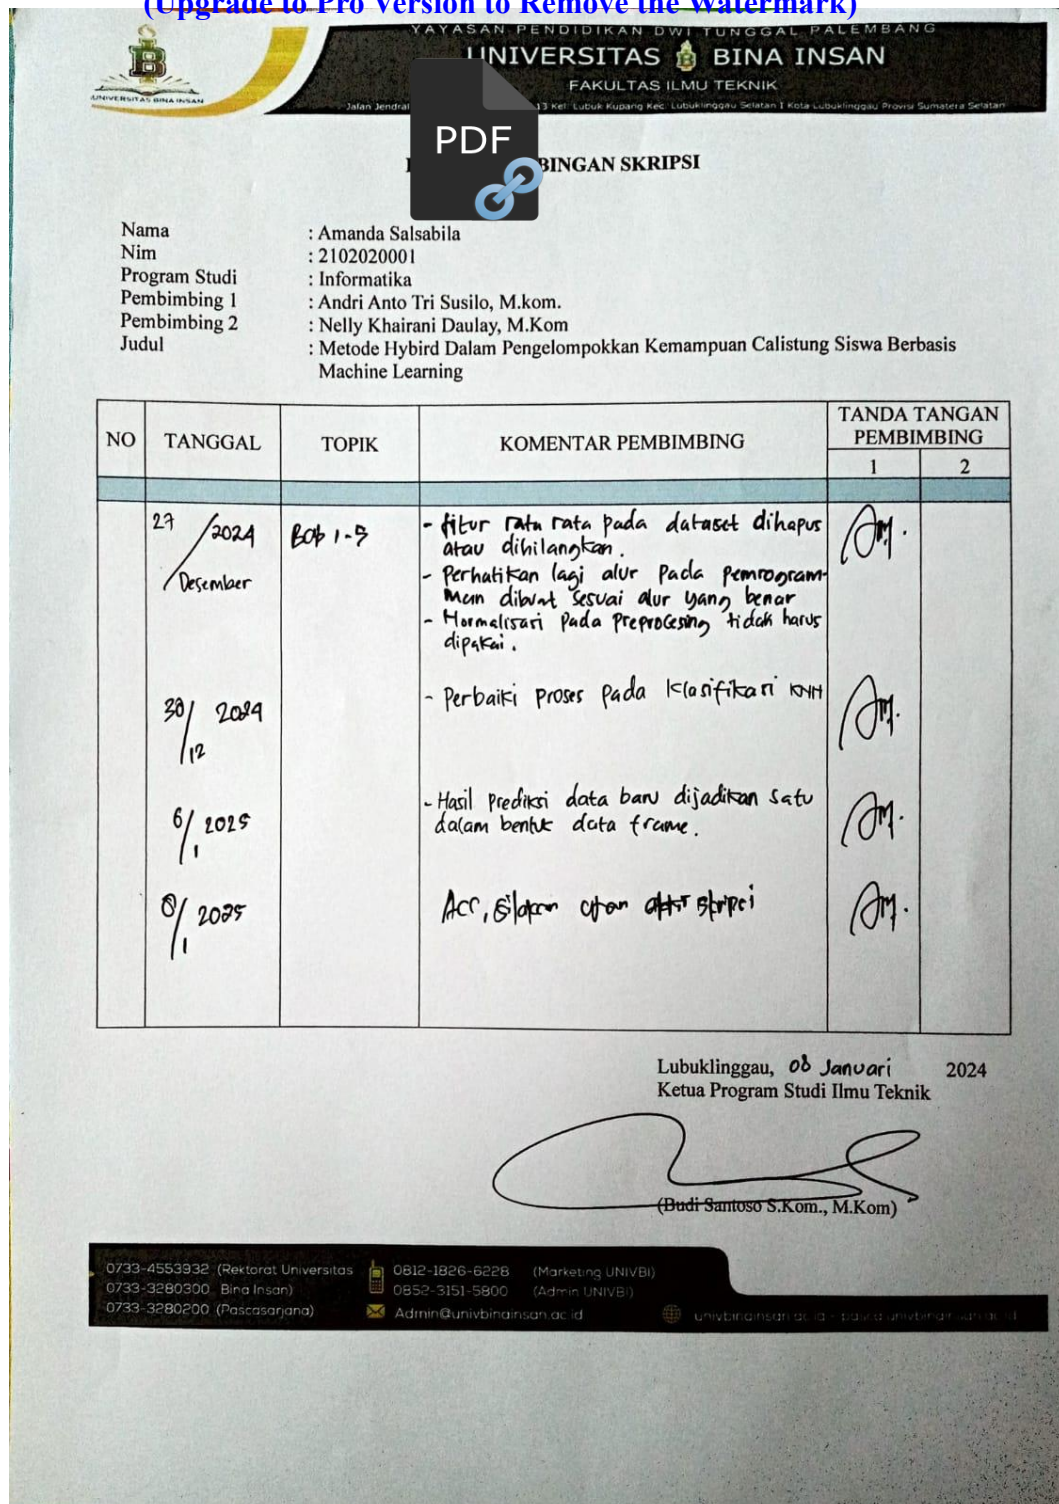 (Upgrade to Pro Version to Remove the Watermark)
YAYASAN PENDIDIKAN DWI TUNGGAL PALEMBANG
UNIVERSITAS BINA INSAN
FAKULTAS ILMU TEKNIK
UNIVERSITAS BINA INSAN
Jalan Jendral 13 Kel. Lubuk Kupang Kec. Lubuklinggau Selatan I Kota Lubuklinggau Provisi Sumatera Selatan
PDF
BINGAN SKRIPSI
Nama : Amanda Salsabila
Nim : 2102020001
Program Studi : Informatika
Pembimbing 1 : Andri Anto Tri Susilo, M.kom.
Pembimbing 2 : Nelly Khairani Daulay, M.Kom
Judul : Metode Hybird Dalam Pengelompokkan Kemampuan Calistung Siswa Berbasis
Machine Learning
NO TANGGAL TOPIK KOMENTAR PEMBIMBING TANDA TANGAN PEMBIMBING
1 2
27 / Desember / 2024 Bab 1-5 - fitur rata rata pada dataset dihapus
atau dihilangkan.
- Perhatikan lagi alur pada pemrogram-
man dibuat sesuai alur yang benar
- Normalisasi pada Preprocesing tidak harus
dipakai.
30/12 2024 - Perbaiki proses pada klasifikasi KNN
6/1 2025 - Hasil prediksi data baru dijadikan satu
dalam bentuk data frame.
8/1 2025 Acc, silakan skripsi
Lubuklinggau, 08 Januari 2024
Ketua Program Studi Ilmu Teknik
(Budi Santoso S.Kom., M.Kom)
0733-4553932 (Rektorat Universitas 0812-1826-6228 (Marketing UNIVBI)
0733-3280300 Bina Insan) 0852-3151-5800 (Admin UNIVBI)
0733-3280200 (Pascasarjana) Admin@univbinainsan.ac.id univbinainsan.ac.id